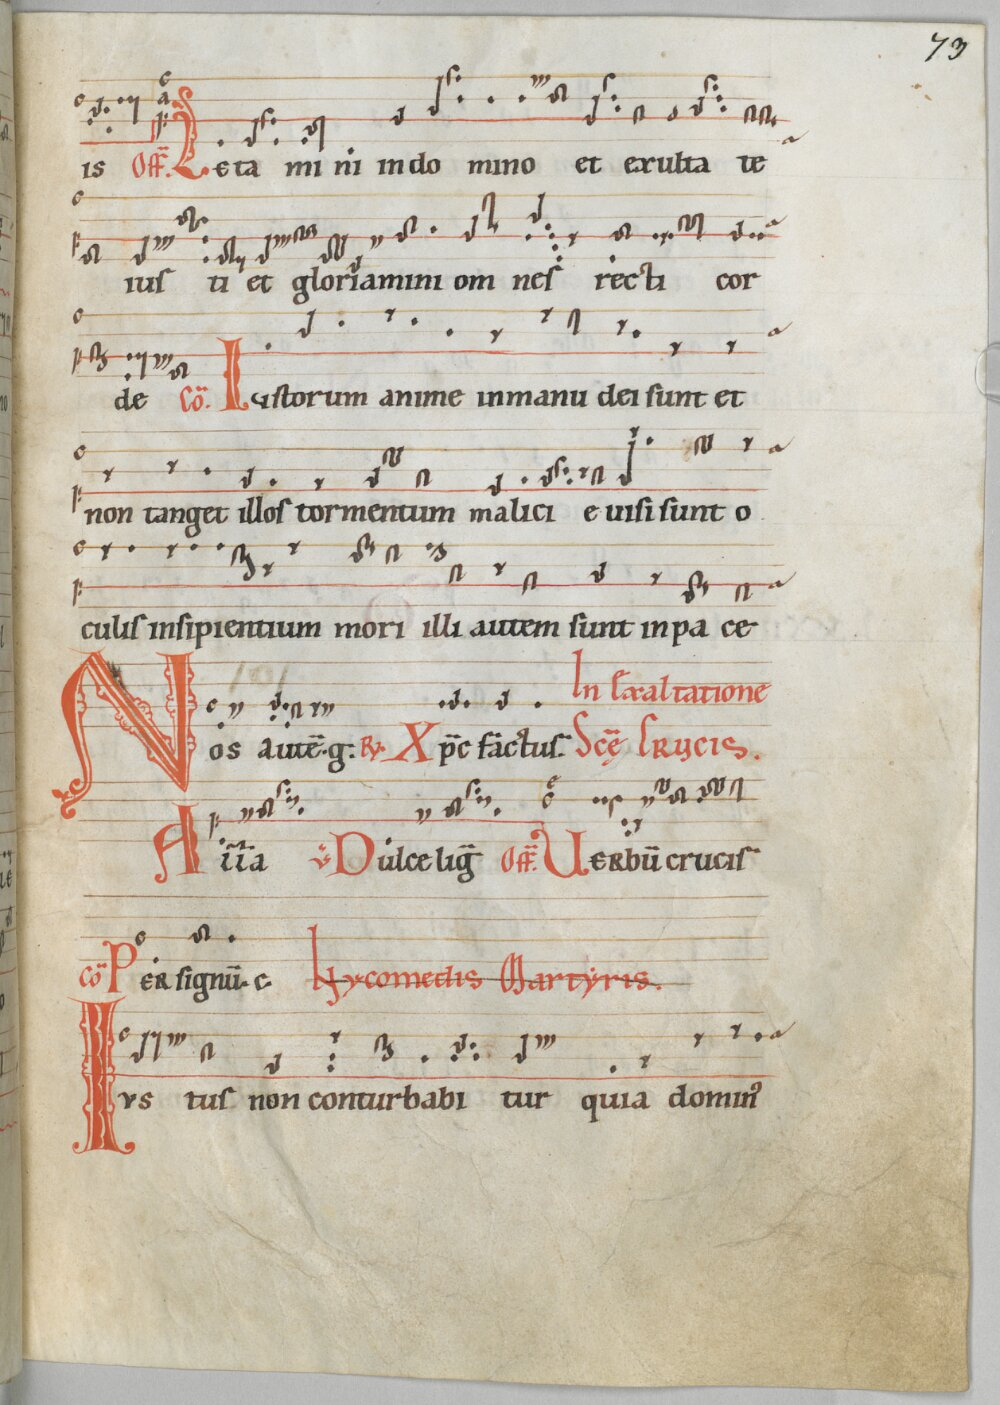 73
is Off̄. Leta mi ni in do mino et exulta te
ius ti et gloriamini om nes recti cor
de Cō. Iustorum anime in manu dei sunt et
non tanget illos tormentum malici e uisi sunt o
culis insipientium mori illi autem sunt in pa ce
In Exaltatione
Nos autē. g. R. Xp̄c factus. Scē Crucis.
Alla v̄ Dulce lig̃ Off̄. Uerbū crucis
Cō Per signū. c Nycomedis Martyris.
Ius tus non conturbabi tur quia domin᾽